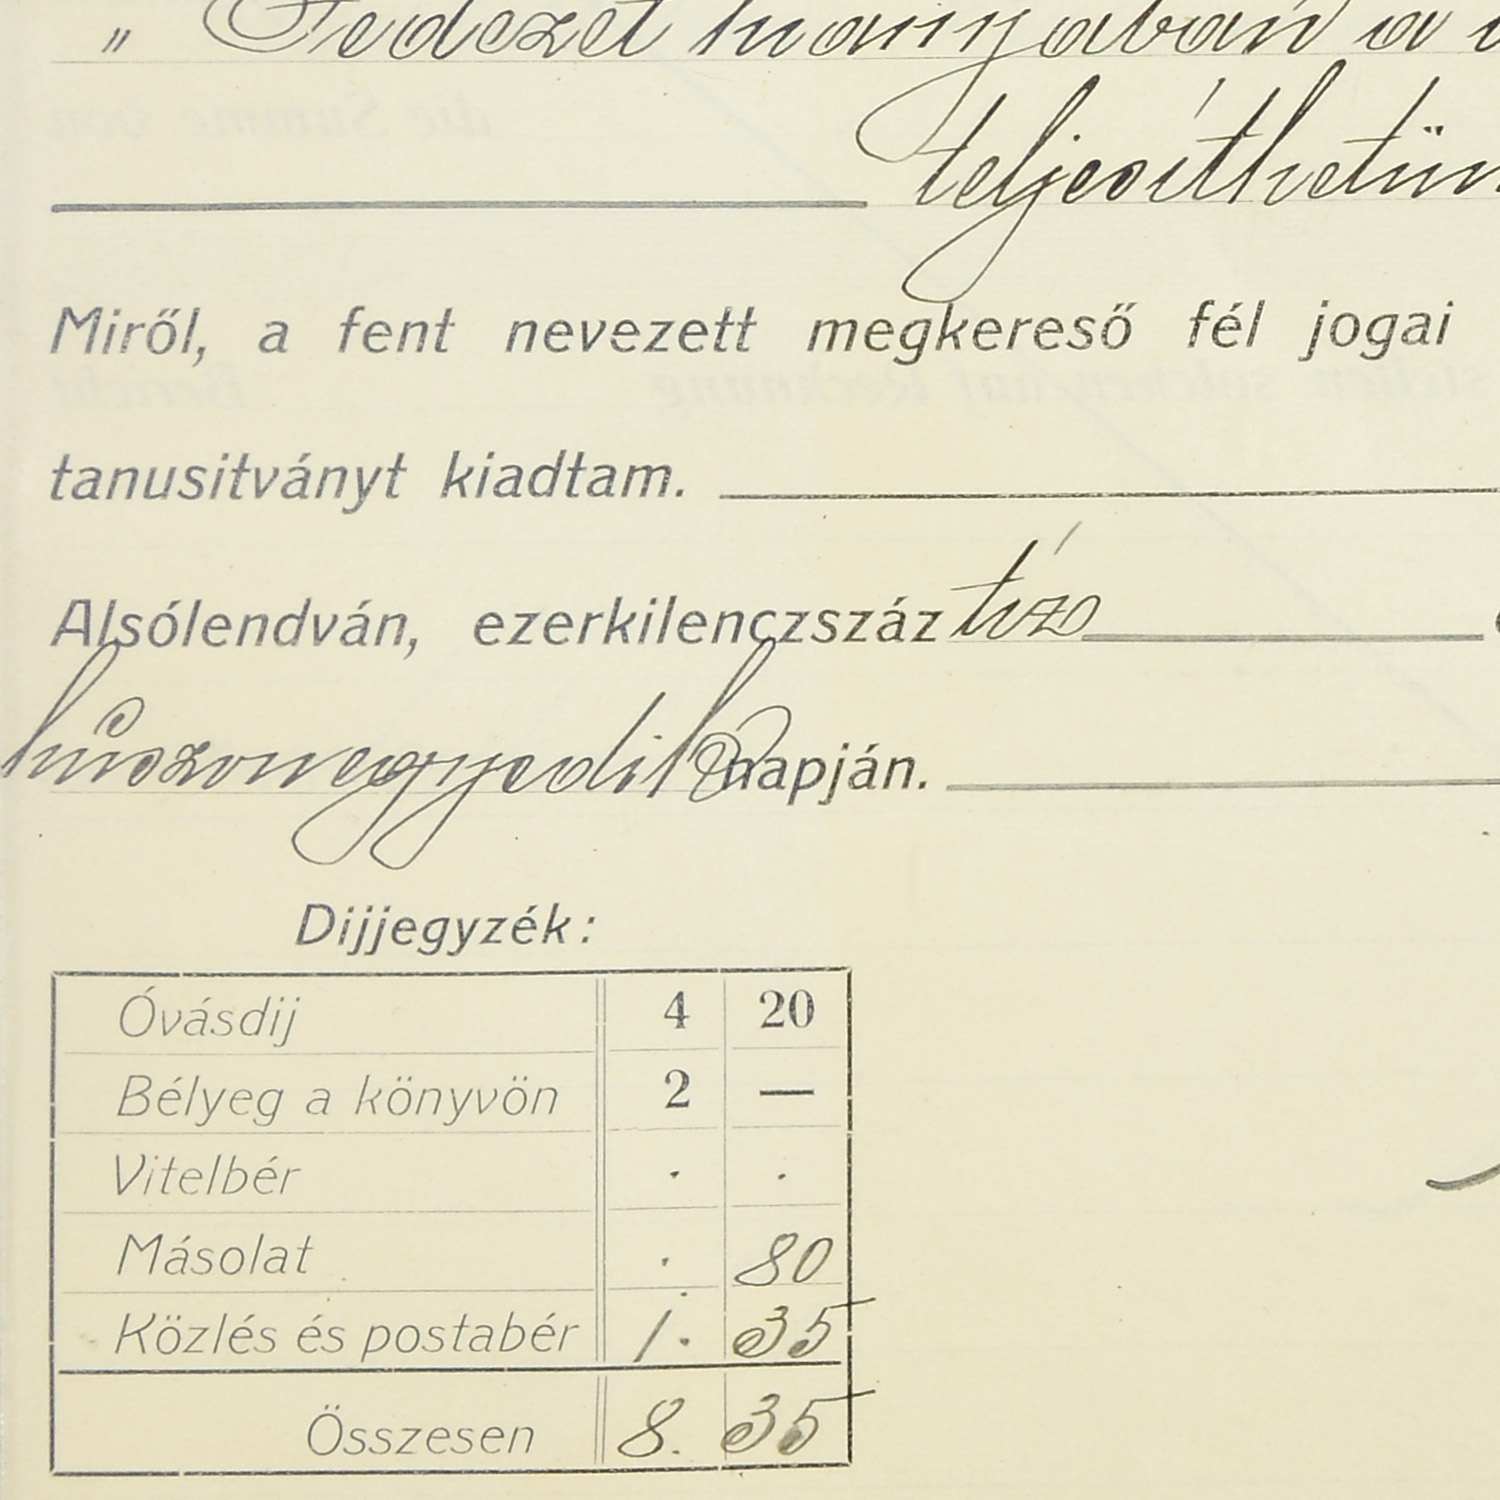 „ Fedezet hiányában a
teljesíthetün
Miről, a fent nevezett megkereső fél jogai
tanusitványt kiadtam.
Alsólendván, ezerkilenczszáz tíz
huszonegyedik napján.
Dijjegyzék:
Óvásdij 4 20
Bélyeg a könyvön 2 —
Vitelbér . .
Másolat . 80
Közlés és postabér 1. 35
Összesen 8. 35